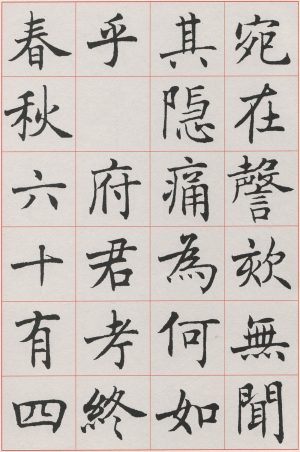 宛在謦欬無聞
其隠痛為何如
乎 府君考終
春秋六十有四